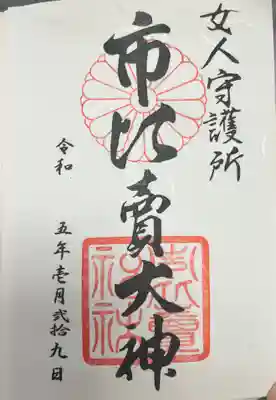 女人守護所
市比賣大神
令和 五年壱月弐拾九日